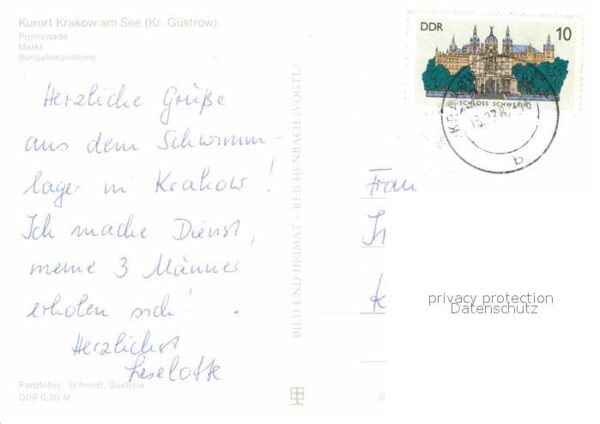 Kurort Krakow am See (Kr. Güstrow)
Promenade
Markt
Bungalowsiedlung
Herzliche Grüße
aus dem Schwimm-
lager in Krakow!
Ich mache Dienst,
meine 3 Männer
erholen sich!
Herzlichst
Liselotte
Farbfotos: Schmidt, Güstrow
DDR 0,20 M
BILD UND HEIMAT · REICHENBACH (VOGTL)
DDR
10
SCHLOSS SCHWERIN
b
Frau
privacy protection
Datenschutz